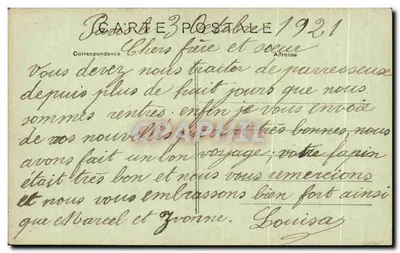 CARTE POSTALE
le 3 Octobre 1921
Correspondance Adresse
Chers frère et soeur
Vous devez nous traiter de paresseuse
depuis plus de huit jours que nous
sommes rentrés, enfin je vous envoie
de nos nouvelles très bonnes, nous
avons fait un bon voyage; votre lapin
était très bon et nous vous remercions
et nous vous embrassons bien fort ainsi
que Marcel et Yvonne. Louisa